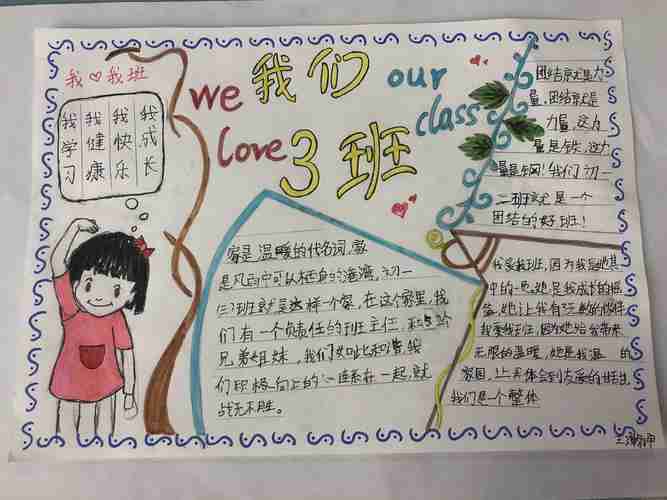 我♡我班
我学习
我健康
我快乐
我成长
we 我们 our
love 3班 class
团结就是力
量,团结就是
力量,这力
量是铁,这力
量是钢!我们初一
二班就是一个
团结的好班!
家是温暖的代名词,家
是风雨中可以栖息的港湾,初一
(三)班就是这样一个家,在这个家里,我
们有一个负责任的班主任,和
兄弟姐妹,我们如此和谐,我
们积极向上的心连系在一起,就
战无不胜。
我爱我班,因为我是她其
中的一员,她是我成长的摇
篮,她让我有无数的伙伴
我爱我班,因为她给我带来
无限的温暖,她是我温 的
家园,让我体会到友爱的
我们是一个整体